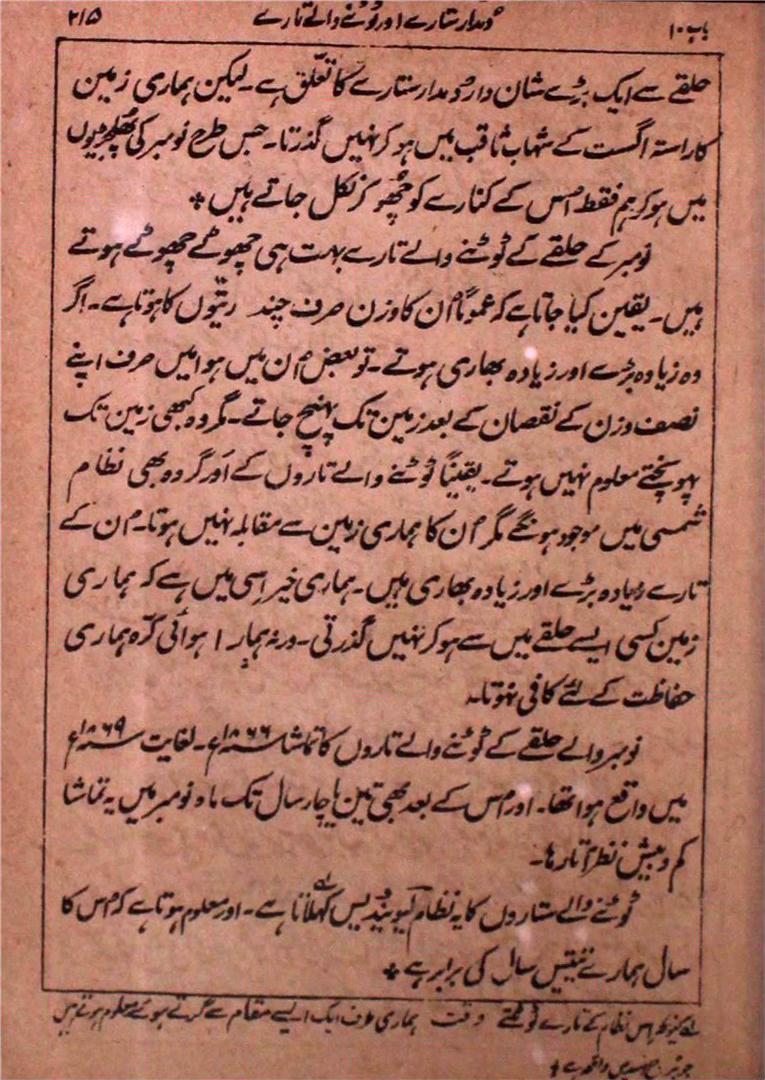 باب ۱۰ دُمدار ستارے اور ٹوٹنے والے تارے ۲۱۵
حلقے سے ایک بڑے شان دار دُمدار ستارے کا تعلّق ہے۔ لیکن ہماری زمین
کا راستہ اگست کے شہاب ثاقب میں ہو کر نہیں گذرتا۔ جس طرح نومبر کی پھلجھڑیوں
میں ہو کر ہم فقط اُس کے کنارے کو چھُو کر نکل جاتے ہیں *
نومبر کے حلقے کے ٹوٹنے والے تارے بہت ہی چھوٹے چھوٹے ہوتے
ہیں۔ یقین کیا جاتا ہے کہ عموماً اُن کا وزن صرف چند رتیّوں کا ہوتا ہے۔ اگر
وہ زیادہ بڑے اور زیادہ بھاری ہوتے۔ تو بعض اُن میں ہوا میں صرف اپنے
نصف وزن کے نقصان کے بعد زمین تک پہنچ جاتے۔ مگر وہ کبھی زمین تک
پہونچتے معلوم نہیں ہوتے۔ یقیناً ٹوٹنے والے تاروں کے اَور گروہ بھی نظام
شمسی میں موجود ہونگے مگر اُن کا ہماری زمین سے مقابلہ نہیں ہوتا۔ اُن کے
تارے زیادہ بڑے اور زیادہ بھاری ہیں۔ ہماری خیر اِسی میں ہے کہ ہماری
زمین کسی ایسے حلقے میں سے ہو کر نہیں گذرتی۔ ورنہ ہمارا ہوائی کرّہ ہماری
حفاظت کے لئے کافی نہوتا۔
نومبر والے حلقے کے ٹوٹنے والے تاروں کا تماشا سنہ ۱۸۶۶ء۔ لغایت سنہ ۱۸۶۹ء
میں واقع ہوا تھا۔ اور اس کے بعد بھی تین یا چار سال تک ماہ نومبر میں یہ تماشا
کم و بیش نظر آتا رہا۔
ٹوٹنے والے ستاروں کا یہ نظام لیونیڈیس کہلاتا ہے۔ اور معلوم ہوتا ہے کہ اُس کا
سال ہمارے تینتیس سال کی برابر ہے *
لے کیونکہ اِس نظام کے تارے ٹوٹتے وقت ہماری طرف ایک ایسے مقام سے گرتے ہوئے معلوم ہوتے ہیں
جو برج اسد میں واقع ہے *